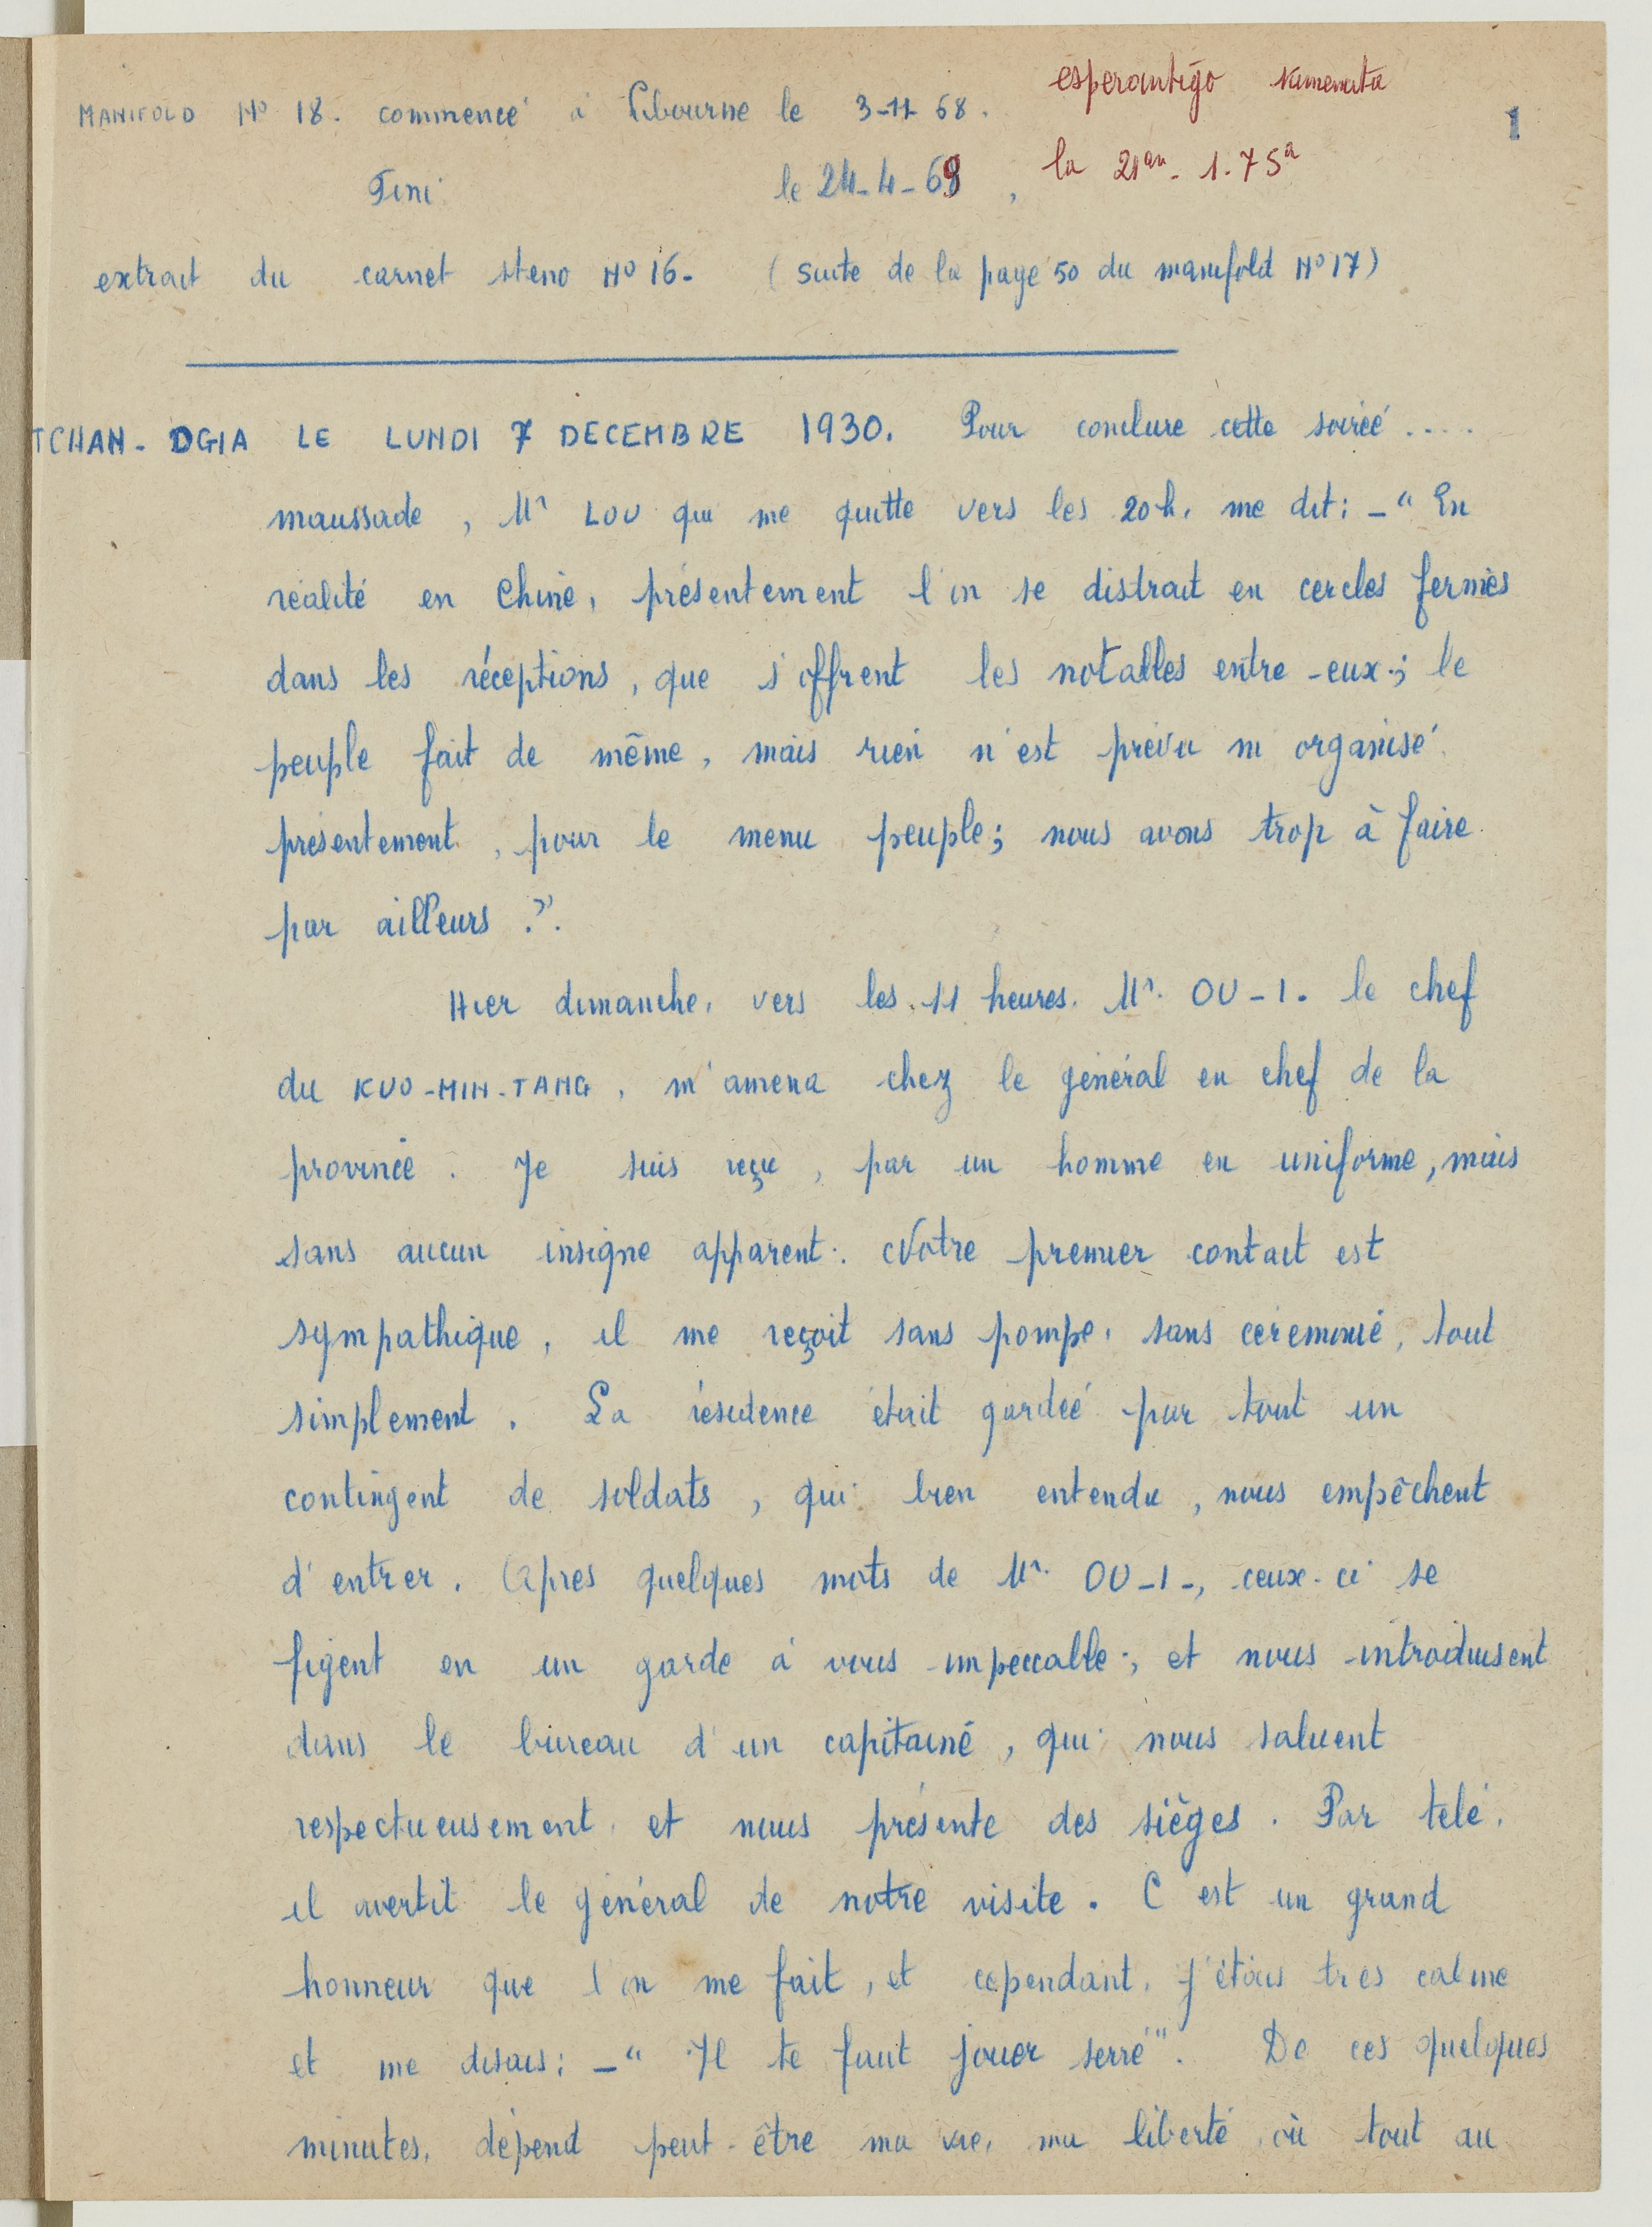 esperantigo
MANIFOLD Nº 18. commencé à Libourne le 3-11-68.
1
Fini le 24-4-69, la 21an-1-75a
extrait du carnet steno Nº 16- (suite de la page 50 du manifold Nº 17)
TCHAN-DGIA LE LUNDI 7 DECEMBRE 1930. Pour conclure cette soirée ....
maussade, Mr LOU qui me quitte vers les 20h, me dit: -" En
réalité en Chine, présentement l'on se distrait en cercles fermés
dans les réceptions, que s'offrent les notables entre-eux; le
peuple fait de même, mais rien n'est prévu ni organisé
présentement, pour le menu peuple; nous avons trop à faire
par ailleurs ?".
Hier dimanche, vers les 11 heures. Mr. OU-I. le chef
du KUO-MIN-TANG, m'amena chez le général en chef de la
province. Je suis reçu, par un homme en uniforme, mais
sans aucun insigne apparent. Notre premier contact est
sympathique, il me reçoit sans pompe, sans cérémonie, tout
simplement. La résidence était gardée par tout un
contingent de soldats, qui bien entendu, nous empêchent
d'entrer. Après quelques mots de Mr. OU-I-, ceux-ci se
figent en un garde à vous impeccable; et nous introduisent
dans le bureau d'un capitaine, qui nous saluent
respectueusement, et nous présente des sièges. Par télé.
il avertit le général de notre visite. C'est un grand
honneur que l'on me fait, et cependant, j'étais très calme
et me disais: -" Il te faut jouer serré". De ces quelques
minutes, dépend peut-être ma vie, ma liberté, où tout au